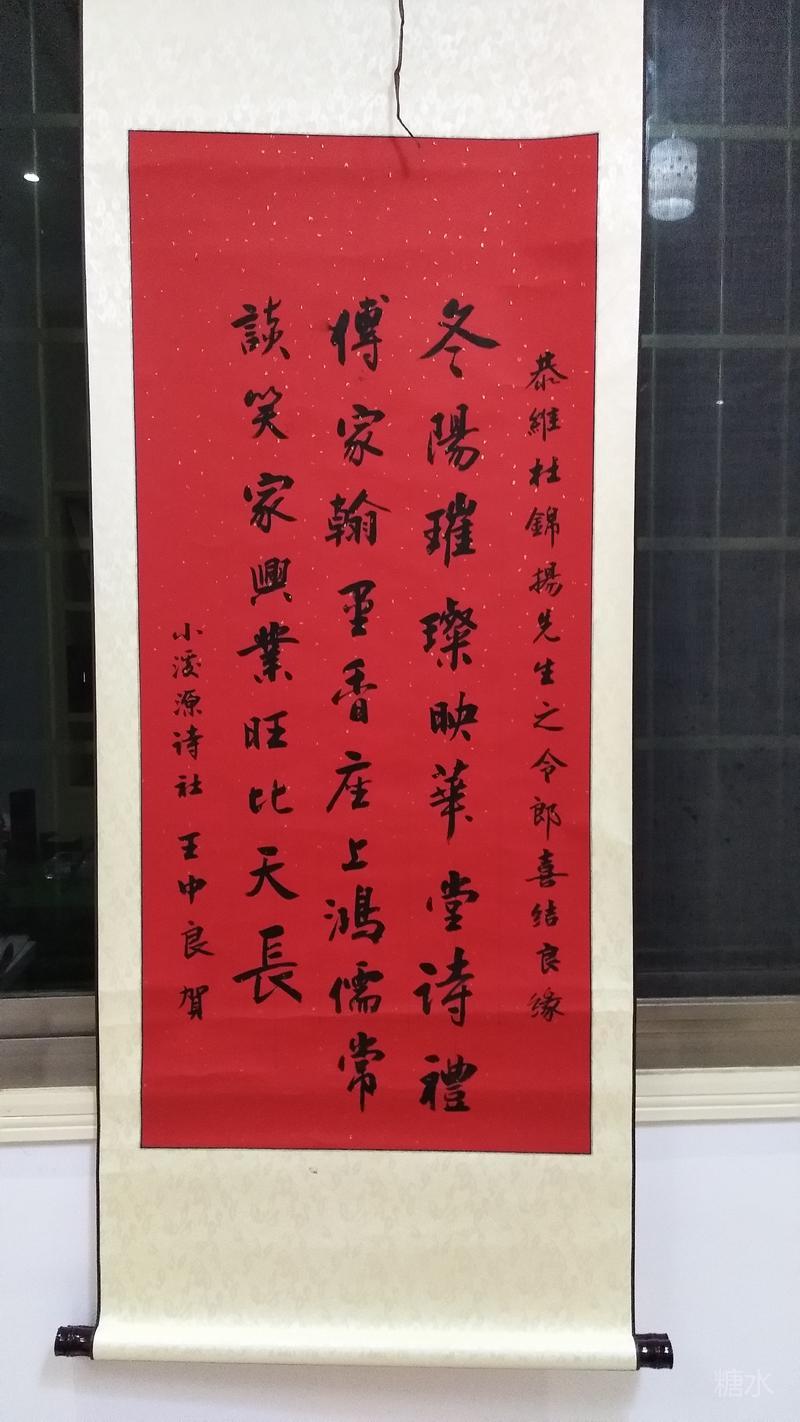 恭維杜錦揚先生之令郎喜结良缘
冬陽璀璨映華堂詩禮
傅家翰墨香座上鴻儒常
談笑家興業旺比天長
小溪源诗社 王中良賀
糖水